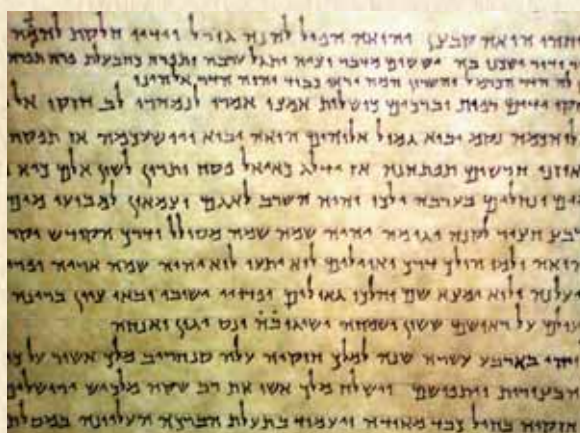 יחדו הואה קבצן והואה הפיל להנה גורל וידיו חלקת להמה
ודור ישכנו בה יששום מדבר וציה ותגל ערבה ותפרח כחבצלת פרח תפרח
לה הדר הכרמל והשרון המה יראו כבוד יהוה הדר אלוהינו
חזקו ידים רפות וברכים כושלות אמצו אמרו לנמהרי לב חזקו אל
אלוהכמה נקם יביא גמול אלוהים הואה יביא ויושעכמה אז תפקח
אוזני חרשים תפתחנה אז ידלג כאיל פסח ותרון לשון אלם כיא
מים ונחלים בערבה ילכו והיה השרב לאגם וצמאון למבועי מים
רבץ חציר לקנה וגומה יהיה שמה שמה מסלול ודרך הקודש יקר
הואה ולמו הולך דרך ואוילים לוא יתעו לוא יהיה שמה אריה ופרי
יעלנה ולוא ימצא שם והלכו גאולים ופדויי ישובו ובאו ציון ברינה
עולם על ראושם ששון ושמחה ישיגו בה ונס יגון ואנחה
ויהי בארבע עשרא שנה למלך חוזקיה עלה סנחריב מלך אשור על כו
הבצורות ויתפושם וישלח מלך אשור את רב שקה מלכיש ירושלים
חוזקיה בחיל כבד מאודה ויעמוד בתעלת הברכה העליונה במסלת